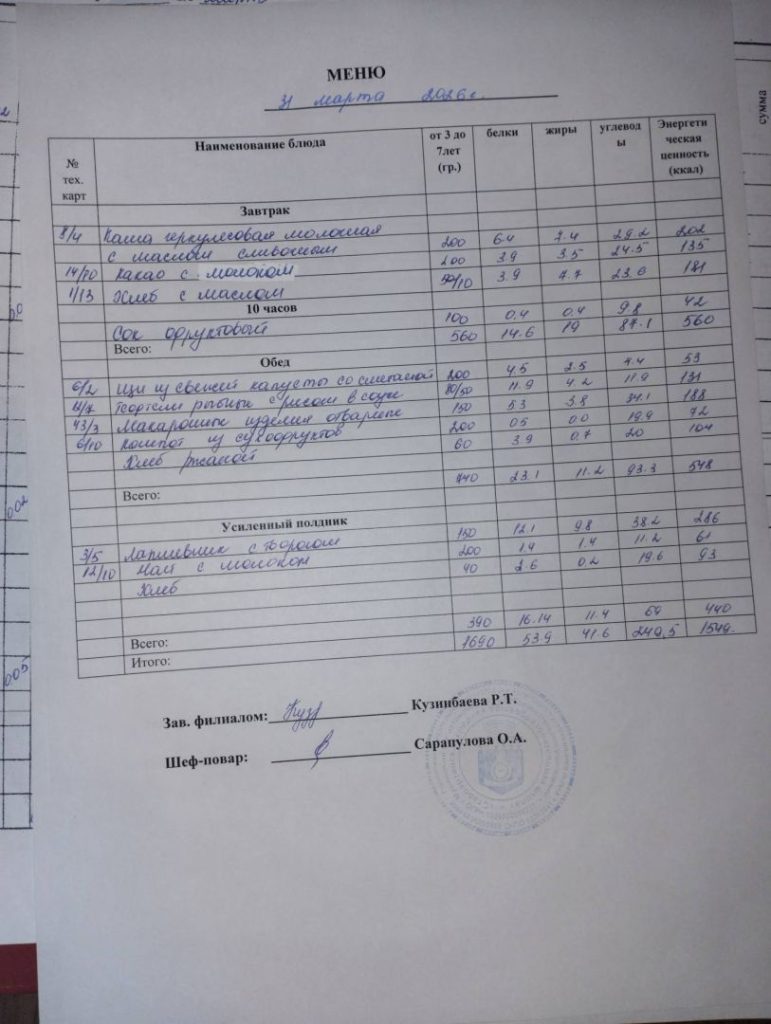 МЕНЮ
31 марта 2026г.
№ тех. карт Наименование блюда от 3 до 7лет (гр.) белки жиры углеводы Энергетическая ценность (ккал)
Завтрак
8/4 Каша геркулесовая молочная
с маслом сливочным 200 6.4 7.4 29.2 202
14/10 Какао с молоком 200 3.9 3.5 24.5 135
1/13 Хлеб с маслом /10 3.9 7.7 23.6 181
10 часов
Сок фруктовый 100 0.4 0.4 9.8 42
Всего: 560 14.6 19 87.1 560
Обед
6/2 Щи из свежей капусты со сметаной 200 4.5 2.5 7.4 53
Тефтели рыбные с рисом в соусе 80/50 11.9 4.2 11.9 131
43/3 Макаронные изделия отварные 150 5.3 3.8 34.1 188
6/10 Компот из сухофруктов 200 0.5 0.0 19.9 72
Хлеб ржаной 60 3.9 0.7 20 104
Всего: 740 23.1 11.2 93.3 548
Усиленный полдник
3/5 Лапшевник с творогом 150 12.1 9.8 38.2 286
12/10 Чай с молоком 200 1.4 1.4 11.2 61
Хлеб 40 2.6 0.2 19.6 93
Всего: 390 16.14 11.4 69 440
Итого: 1690 53.9 41.6 249.5 1549.
Зав. филиалом: Кузинбаева Р.Т.
Шеф-повар: Сарапулова О.А.
сумма
002
005